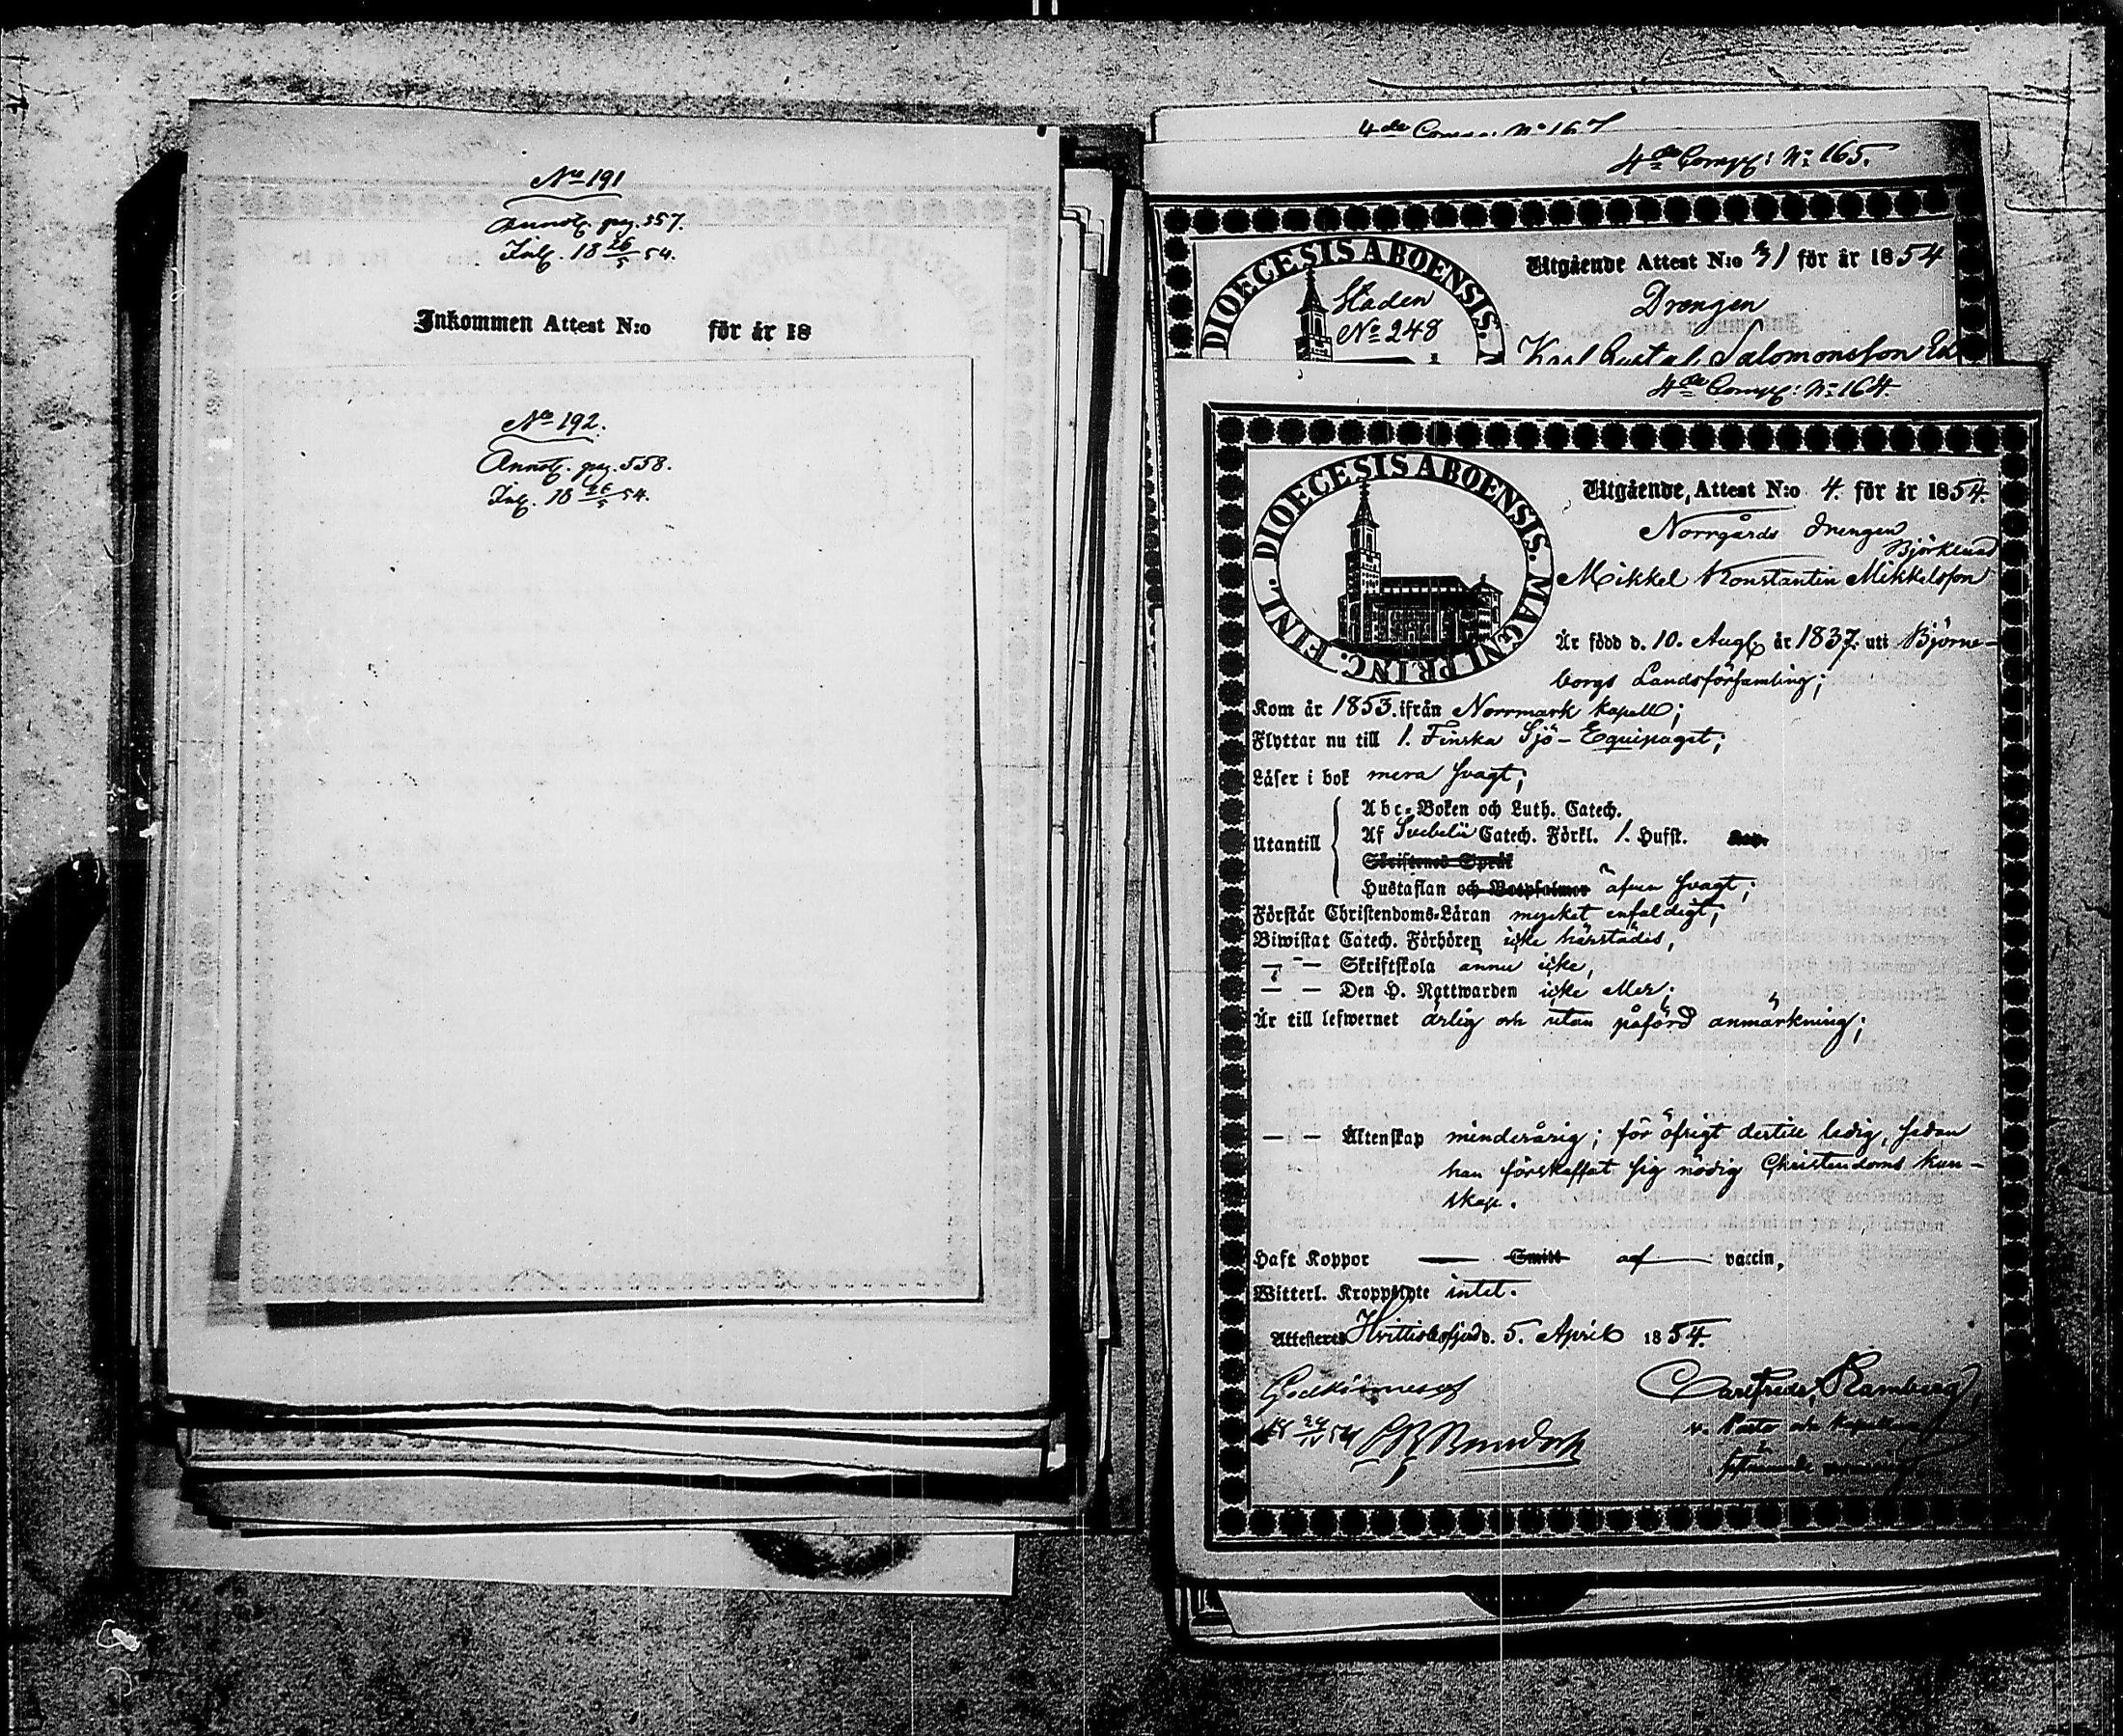 No 191
Annot. pag. 557.
Inl. 18 26/5 54.
Inkommen Attest N:o för år 18
No 192.
Annot. pag. 558.
Inl. 18 26/5 54.
4de Comp: No 167
4de Comp: No 165.
DIOECESIS ABOENSIS.
Staden
No 248
Utgående Attest N:o 31 för år 1854
Drengen
Karl Gustaf Salomonsson
4de Comp: No 164.
DIOECESIS ABOENSIS. MAGNI PRINC. FINL.
Utgående Attest N:o 4. för år 1854.
Norrgårds drengen
Björklund
Mikkel Konstantin Mikkelsson
Är född d. 10. Aug. år 1837. uti Björne-
borgs Landsförsamling;
Kom år 1853. ifrån Norrmark kapell;
Flyttar nu till 1. Finska Sjö-Equipaget;
Läser i bok mera svagt;
Utantill
Abc-Boken och Luth. Catech.
Af Svebelii Catech. Förkl. 1. Hufst. Kap.
Skriftenes Språk
Hustaflan och Botpsalmer äfven svagt;
Förstår Christendoms-Läran mycket enfaldigt;
Biwistat Catech. Förhören icke härstädes,
— — Skriftskola ännu icke,
— — Den H. Nattwarden icke eller.
Är till lefwernet ärlig och utan påförd anmärkning;
— — Äktenskap minderårig; för öfrigt dertill ledig, sedan
han förskaffat sig nödig Christendoms kun-
skap.
Haft Koppor — Smitt af — vaccin,
Witterl. Kroppslyte intet.
Attesteras Hvittisbofjärd d. 5. April 1854.
Godkännes
18 24/IV 54
Carl Fredr. Ramberg
v. Pastor och Kapellan